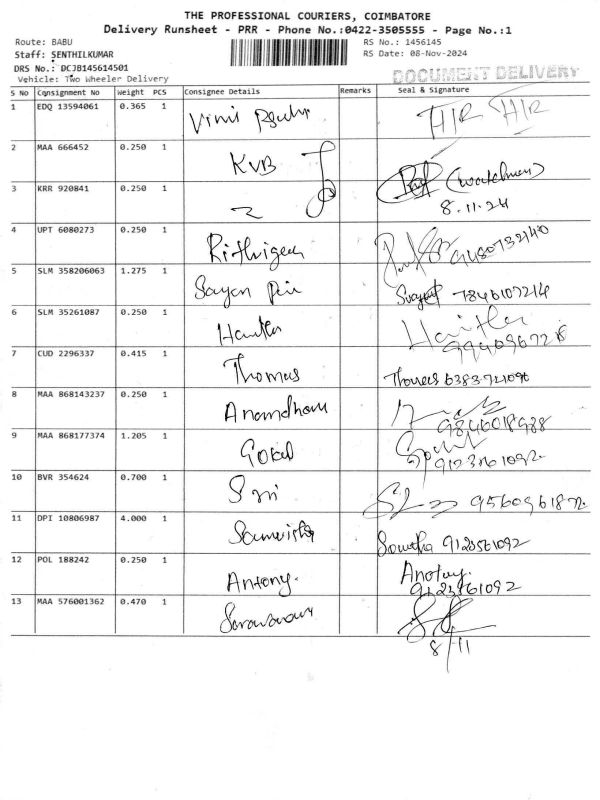 THE PROFESSIONAL COURIERS, COIMBATORE
Delivery Runsheet - PRR - Phone No.:0422-3505555 - Page No.:1
Route: BABU RS No.: 1456145
Staff: SENTHILKUMAR RS Date: 08-Nov-2024
DRS No.: DCJB145614501
DOCUMENT DELIVERY
Vehicle: Two Wheeler Delivery
S No Consignment No Weight PCS Consignee Details Remarks Seal & Signature
1 EDQ 13594061 0.365 1 H/R H/R
2 MAA 666452 0.250 1 KVB (watchman)
3 KRR 920841 0.250 1 8.11.24
4 UPT 6080273 0.250 1
5 SLM 358206063 1.275 1 Sayan 7846107214
6 SLM 35261087 0.250 1 Haritha Haritha
7 CUD 2296337 0.415 1 Thomas Thomas
8 MAA 868143237 0.250 1
9 MAA 868177374 1.205 1 Gokul
10 BVR 354624 0.700 1 Sri
11 DPI 10806987 4.000 1
12 POL 188242 0.250 1 Antony.
9123561092
13 MAA 576001362 0.470 1 Saravanan
8/11